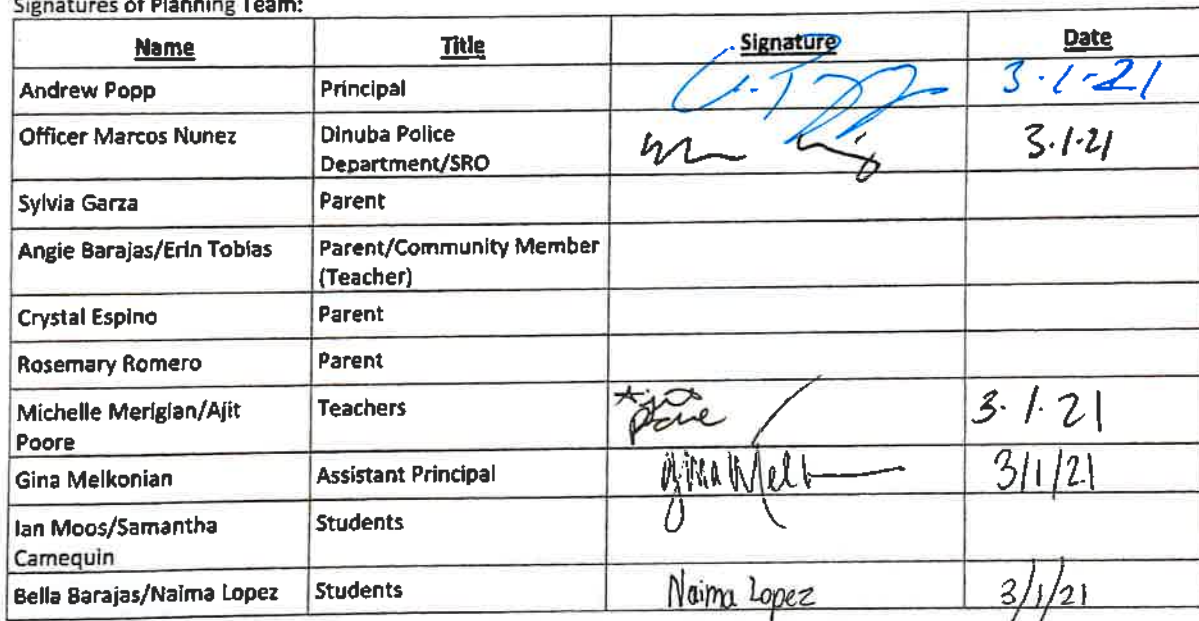 Signatures of Planning Team:
Name Title Signature Date
Andrew Popp Principal 3·1·21
Officer Marcos Nunez Dinuba Police 3·1·21
Department/SRO
Sylvia Garza Parent
Angie Barajas/Erin Tobias Parent/Community Member
(Teacher)
Crystal Espino Parent
Rosemary Romero Parent
Michelle Merigian/Ajit Teachers Ajit Poore 3·1·21
Poore
Gina Melkonian Assistant Principal Gina Melk 3/1/21
Ian Moos/Samantha Students
Camequin
Bella Barajas/Naima Lopez Students Naima Lopez 3/1/21